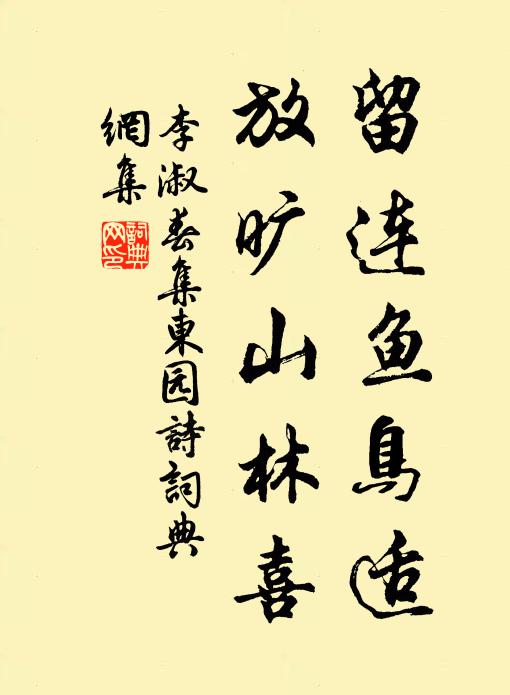 留连鱼鸟适
放旷山林喜
李淑春集東园詩詞典
網集
詞典
网印